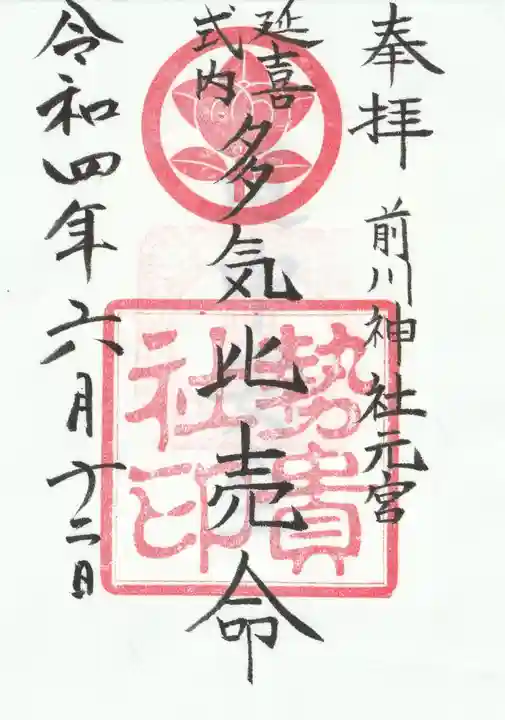 奉拝
前川神社元宮
延喜
式内
多気比売命
勢貴
社印
令和四年六月十二日